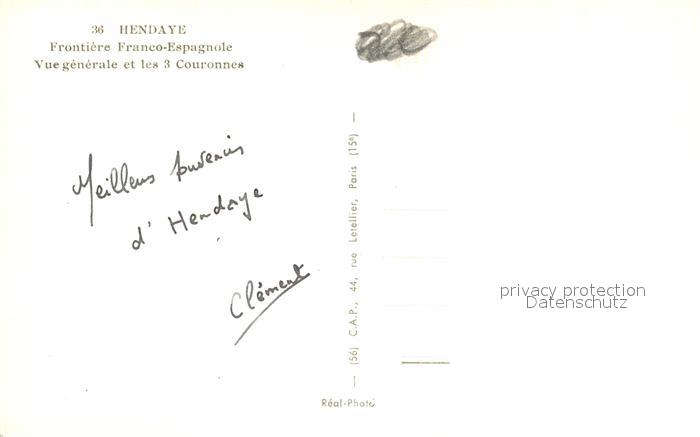 36 HENDAYE
Frontière Franco-Espagnole
Vue générale et les 3 Couronnes
Meilleurs souvenirs
d' Hendaye
Clément
(56) C.A.P., 44, rue Letellier, Paris (15e)
Réal-Photo
privacy protection
Datenschutz